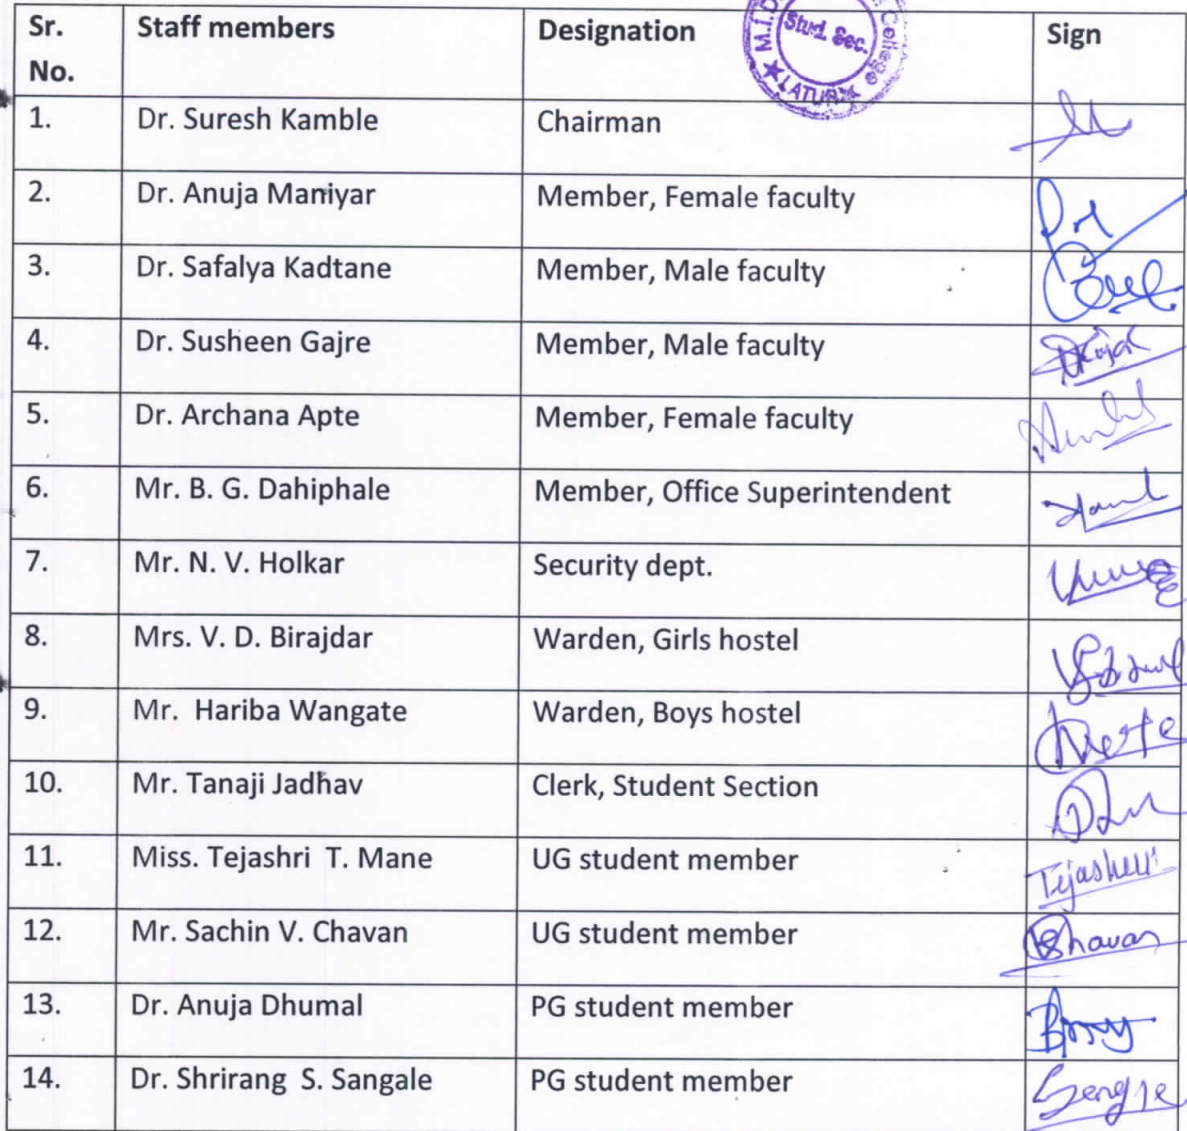 Sr. No. Staff members Designation Sign
M.I.D College
Stud. Sec.
LATUR
1. Dr. Suresh Kamble Chairman
2. Dr. Anuja Maniyar Member, Female faculty
3. Dr. Safalya Kadtane Member, Male faculty
4. Dr. Susheen Gajre Member, Male faculty
5. Dr. Archana Apte Member, Female faculty
6. Mr. B. G. Dahiphale Member, Office Superintendent
7. Mr. N. V. Holkar Security dept.
8. Mrs. V. D. Birajdar Warden, Girls hostel
9. Mr. Hariba Wangate Warden, Boys hostel
10. Mr. Tanaji Jadhav Clerk, Student Section
11. Miss. Tejashri T. Mane UG student member Tejashri
12. Mr. Sachin V. Chavan UG student member
13. Dr. Anuja Dhumal PG student member
14. Dr. Shrirang S. Sangale PG student member